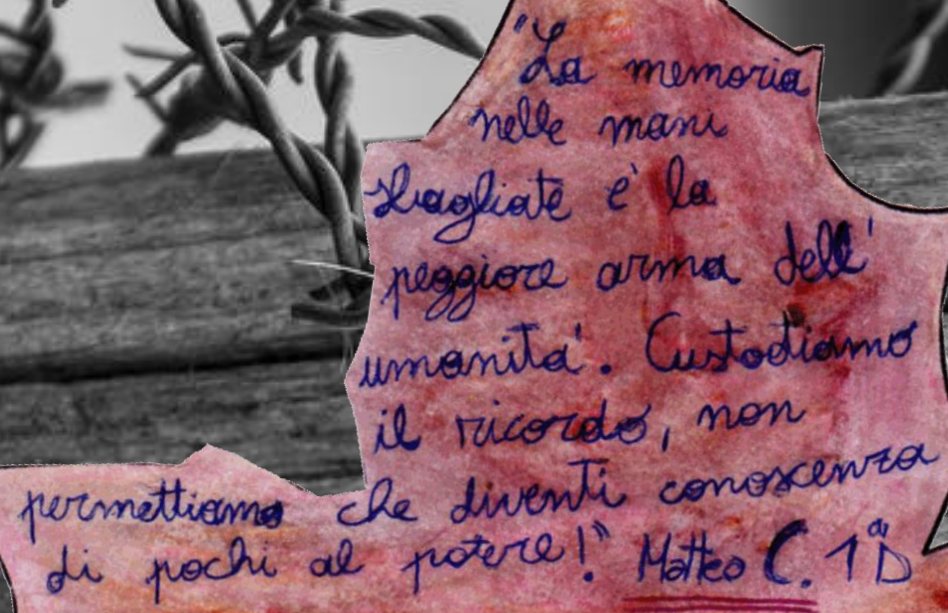 "La memoria
nelle mani
sbagliate è la
peggiore arma dell'
umanità. Custodiamo
il ricordo, non
permettiamo che diventi conoscenza
di pochi al potere!" Matteo C. 1ªD